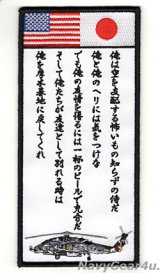 俺は空を支配する怖いもの知らずの侍だ
俺と俺のヘリには気をつけろ
でも俺の友情を得るには一杯のビールで充分だ
そして俺たちが友達として別れる時は
俺を厚木基地に戻してくれ
NavyGear4u.